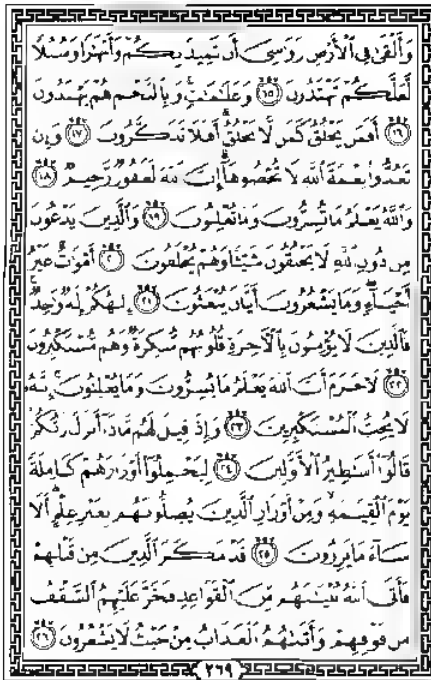 وَأَلْقَىٰ فِي ٱلْأَرْضِ رَوَٰسِيَ أَن تَمِيدَ بِكُمْ وَأَنْهَٰرًا وَسُبُلًا
لَّعَلَّكُمْ تَهْتَدُونَ ١٥ وَعَلَٰمَٰتٍ وَبِٱلنَّجْمِ هُمْ يَهْتَدُونَ
١٦ أَفَمَن يَخْلُقُ كَمَن لَّا يَخْلُقُ أَفَلَا تَذَكَّرُونَ ١٧ وَإِن
تَعُدُّوا۟ نِعْمَةَ ٱللَّهِ لَا تُحْصُوهَآ إِنَّ ٱللَّهَ لَغَفُورٌ رَّحِيمٌ ١٨
وَٱللَّهُ يَعْلَمُ مَا تُسِرُّونَ وَمَا تُعْلِنُونَ ١٩ وَٱلَّذِينَ يَدْعُونَ
مِن دُونِ ٱللَّهِ لَا يَخْلُقُونَ شَيْـًٔا وَهُمْ يُخْلَقُونَ ٢٠ أَمْوَٰتٌ غَيْرُ
أَحْيَآءٍ وَمَا يَشْعُرُونَ أَيَّانَ يُبْعَثُونَ ٢١ إِلَٰهُكُمْ إِلَٰهٌ وَٰحِدٌ
فَٱلَّذِينَ لَا يُؤْمِنُونَ بِٱلْـَٔاخِرَةِ قُلُوبُهُم مُّنكِرَةٌ وَهُم مُّسْتَكْبِرُونَ
٢٢ لَا جَرَمَ أَنَّ ٱللَّهَ يَعْلَمُ مَا يُسِرُّونَ وَمَا يُعْلِنُونَ إِنَّهُۥ
لَا يُحِبُّ ٱلْمُسْتَكْبِرِينَ ٢٣ وَإِذَا قِيلَ لَهُم مَّاذَآ أَنزَلَ رَبُّكُمْ
قَالُوٓا۟ أَسَٰطِيرُ ٱلْأَوَّلِينَ ٢٤ لِيَحْمِلُوٓا۟ أَوْزَارَهُمْ كَامِلَةً
يَوْمَ ٱلْقِيَٰمَةِ وَمِنْ أَوْزَارِ ٱلَّذِينَ يُضِلُّونَهُم بِغَيْرِ عِلْمٍ أَلَا
سَآءَ مَا يَزِرُونَ ٢٥ قَدْ مَكَرَ ٱلَّذِينَ مِن قَبْلِهِمْ
فَأَتَى ٱللَّهُ بُنْيَٰنَهُم مِّنَ ٱلْقَوَاعِدِ فَخَرَّ عَلَيْهِمُ ٱلسَّقْفُ
مِن فَوْقِهِمْ وَأَتَىٰهُمُ ٱلْعَذَابُ مِنْ حَيْثُ لَا يَشْعُرُونَ ٢٦
٢٦٩